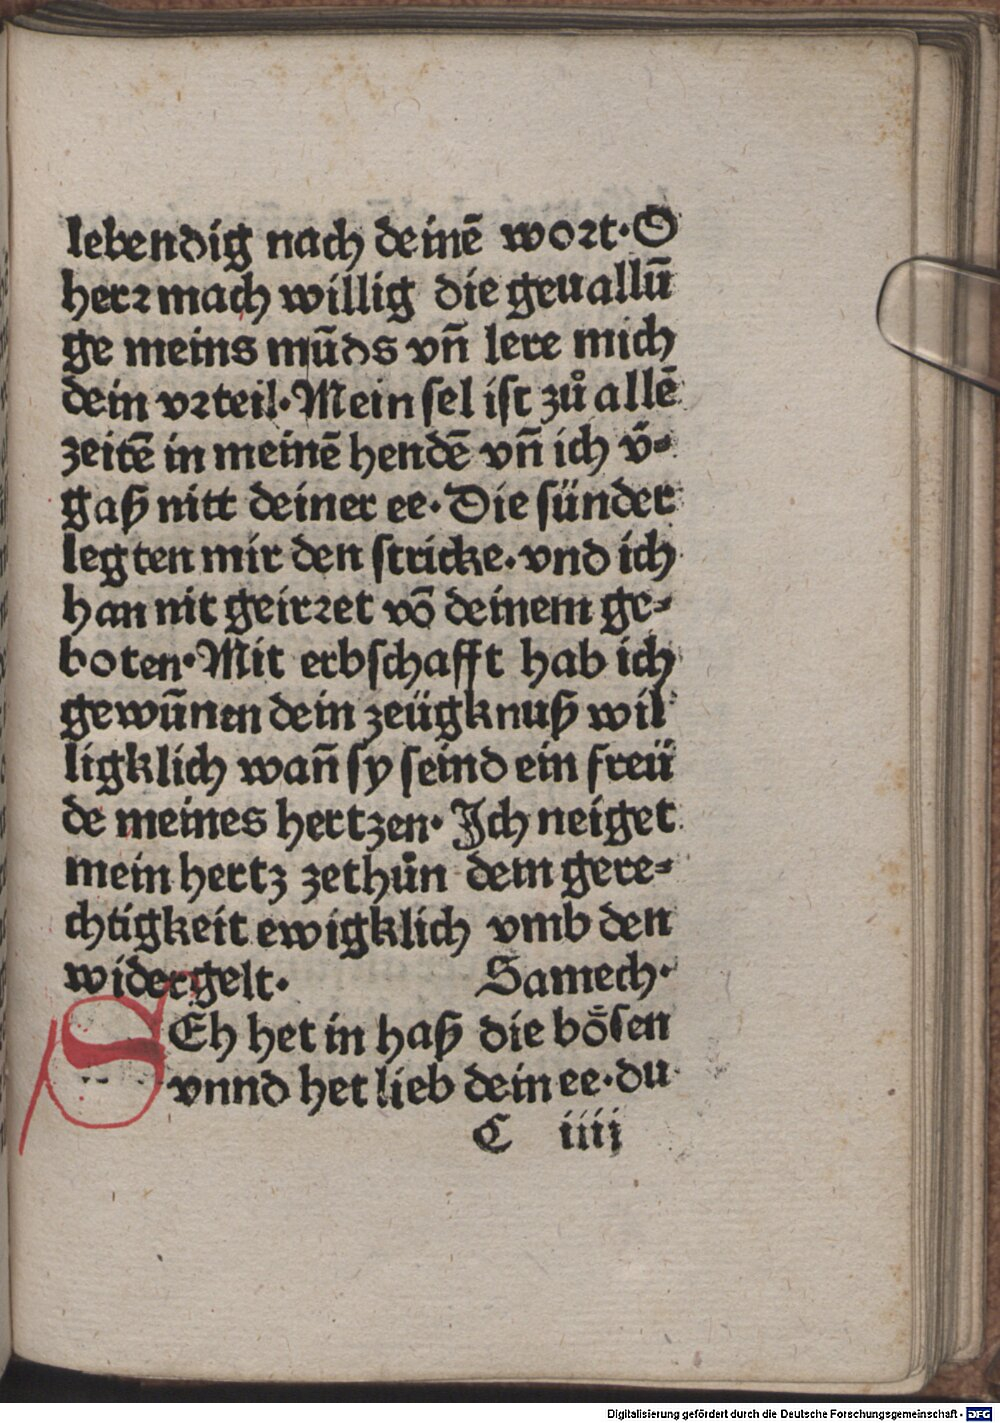 lebendig nach deinē wort·O
herr mach willig die geuallū
ge meins mūds vn̄ lere mich
dein vrteil·Mein sel ist zů allē
zeitē in meinē hendē vn̄ ich v̄⸗
gaß nitt deiner ee·Die sünder
legten mir den stricke.vnd ich
han nit geirret vō deinem ge⸗
boten·Mit erbschafft hab ich
gewūnen dein zeügknuß wil
ligklich wan̄ sy seind ein freü
de meines hertzen·Ich neiget
mein hertz zethůn dem gere⸗
chtigkeit ewigklich vmb den
widergelt· Samech·
SEh het in haß die bösen
vnnd het lieb dein ee·du
C iiij
Digitalisierung gefördert durch die Deutsche Forschungsgemeinschaft - DFG